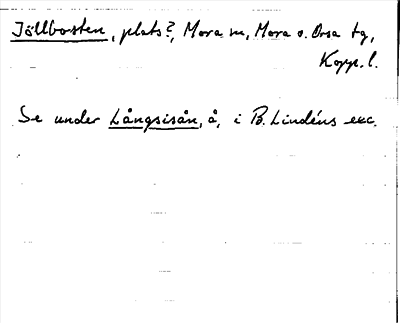 Jällborsten, plats?, Mora sn, Mora o. Orsa tg,
Kopp. l.
Se under Långsisån, å, i B. Lindéns exc.